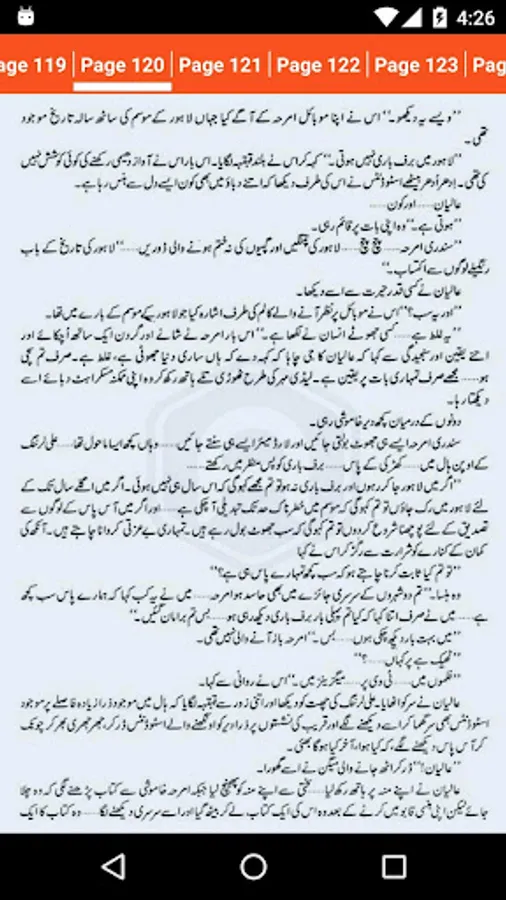 4:26
age 119 | Page 120 | Page 121 | Page 122 | Page 123 | Pag
"ویسے یہ دیکھو۔" اس نے اپنا موبائل امرحہ کے آگے کیا جہاں لاہور کے موسم کی ساٹھ سالہ تاریخ موجود
تھی۔
"لاہور میں برف باری نہیں ہوتی۔" کہہ کر اس نے بلند قہقہہ لگایا۔ اس بار اس نے آواز دھیمی رکھنے کی کوئی کوشش نہیں
کی تھی۔ ادھر اُدھر بیٹھے اسٹوڈنٹس نے اس کی طرف دیکھا کہ اتنے دباؤ میں بھی کون ایسے دل سے ہنس رہا ہے۔
عالیان......اور کون......
"ہوتی ہے۔" وہ اپنی بات پر قائم رہی۔
"سندری امرحہ...... چچ چچ...... لاہور کی پتنگیں اور گپیوں کی نہ ختم ہونے والی ڈوریں......" لاہور کی تاریخ کے باب
رنگیلے لوگوں سے اکتساب۔"
عالیان نے کسی قدر حیرت سے اسے دیکھا۔
"اور یہ سب؟" اس نے موبائل پر نظر آنے والے کالم کی طرف اشارہ کیا جو لاہور کے موسم کے بارے میں تھا۔
"یہ غلط ہے...... کسی جھوٹے انسان نے لکھا ہے۔" اس بار امرحہ نے شانے اور گردن ایک ساتھ اُچکائے اور
اتنے یقین اور سنجیدگی سے کہا کہ عالیان کا جی چاہا کہ کہہ دے کہ ہاں ساری دنیا جھوٹی ہے، غلط ہے۔ صرف تم سچی
ہو...... مجھے صرف تمہاری بات پر یقین ہے۔ لیڈی مہر کی طرح ٹھوڑی تلے ہاتھ رکھ کر وہ اپنی ممکنہ مسکراہٹ دبائے اسے
دیکھتا رہا۔
دونوں کے درمیان کچھ دیر خاموشی رہی۔
سندری امرحہ ایسے ہی جھوٹ بولتی جائیں اور لارڈ میئر ایسے ہی سنتے جائیں...... وہاں کچھ ایسا ماحول تھا...... علی لرننگ
کے اوپن ہال میں...... کھڑکی کے پاس...... برف باری کو پس منظر میں رکھتے......
"اگر میں لاہور جا کر رہوں اور برف باری نہ ہو تو تم مجھے کہو گی کہ اس سال ہی نہیں ہوئی۔ اگر میں اگلے سال تک کے
لئے لاہور میں رک جاؤں تو تم کہو گی کہ موسم میں خطرناک حد تک تبدیلی آ چکی ہے...... اور اگر میں آس پاس کے لوگوں سے
تصدیق کے لئے پوچھنا شروع کر دوں تو تم کہو گی کہ سب جھوٹ بول رہے ہیں۔ تمہاری بے عزتی کروانا چاہتے ہیں۔ آنکھ کی
کمان کے کنارے کو شرارت سے رگڑ کر اس نے کہا
"تو تم کیا ثابت کرنا چاہتے ہو کہ سب کچھ تمہارے پاس ہی ہے؟"
وہ ہنسا۔ "تم دو شہروں کے سرسری جائزے میں بھی حاسد ہو امرحہ...... میں نے یہ کب کہا کہ ہمارے پاس سب کچھ
ہے...... میں نے صرف اتنا کہا کہ کیا تم پہلی بار برف باری دیکھ رہی ہو...... بس تم برا مان گئیں۔"
"میں بہت بار دیکھ چکی ہوں...... بس۔" امرحہ باز آنے والی نہیں تھی۔
"ٹھیک ہے پر کہاں......؟"
"فلموں میں...... ٹی وی پر...... میگزینز میں۔" اس نے روانی سے کہا۔
عالیان نے سر کو اٹھایا۔ علی لرننگ کی چھت کو دیکھا اور اتنی زور سے قہقہہ لگایا کہ ہال میں موجود ذرا زیادہ فاصلے پر موجود
اسٹوڈنٹس بھی سر گھما کر اسے دیکھنے لگے اور قریب کی نشستوں پر ذرا دیر کو اونگھنے والے اسٹوڈنٹس ڈر کر، جھرجھری بھر کر چونک
کر آس پاس دیکھنے لگے، کہ کیا ہوا، آخر کیا ہو گا بھئی۔
"عالیان!" ڈر کر اٹھ جانے والی سیگن نے اسے گھورا۔
عالیان نے اپنے منہ پر ہاتھ رکھ لیا...... سختی سے اپنے منہ کو بھینچ لیا جبکہ امرحہ خاموشی سے کتاب پڑھنے لگی کہ وہ چلا
جائے لیکن اپنی ہنسی قابو میں کرنے کے بعد وہ اس کی ایک کتاب لے کر بیٹھ گیا اور اسے سرسری دیکھنے لگا...... وہ کتاب کا ایک